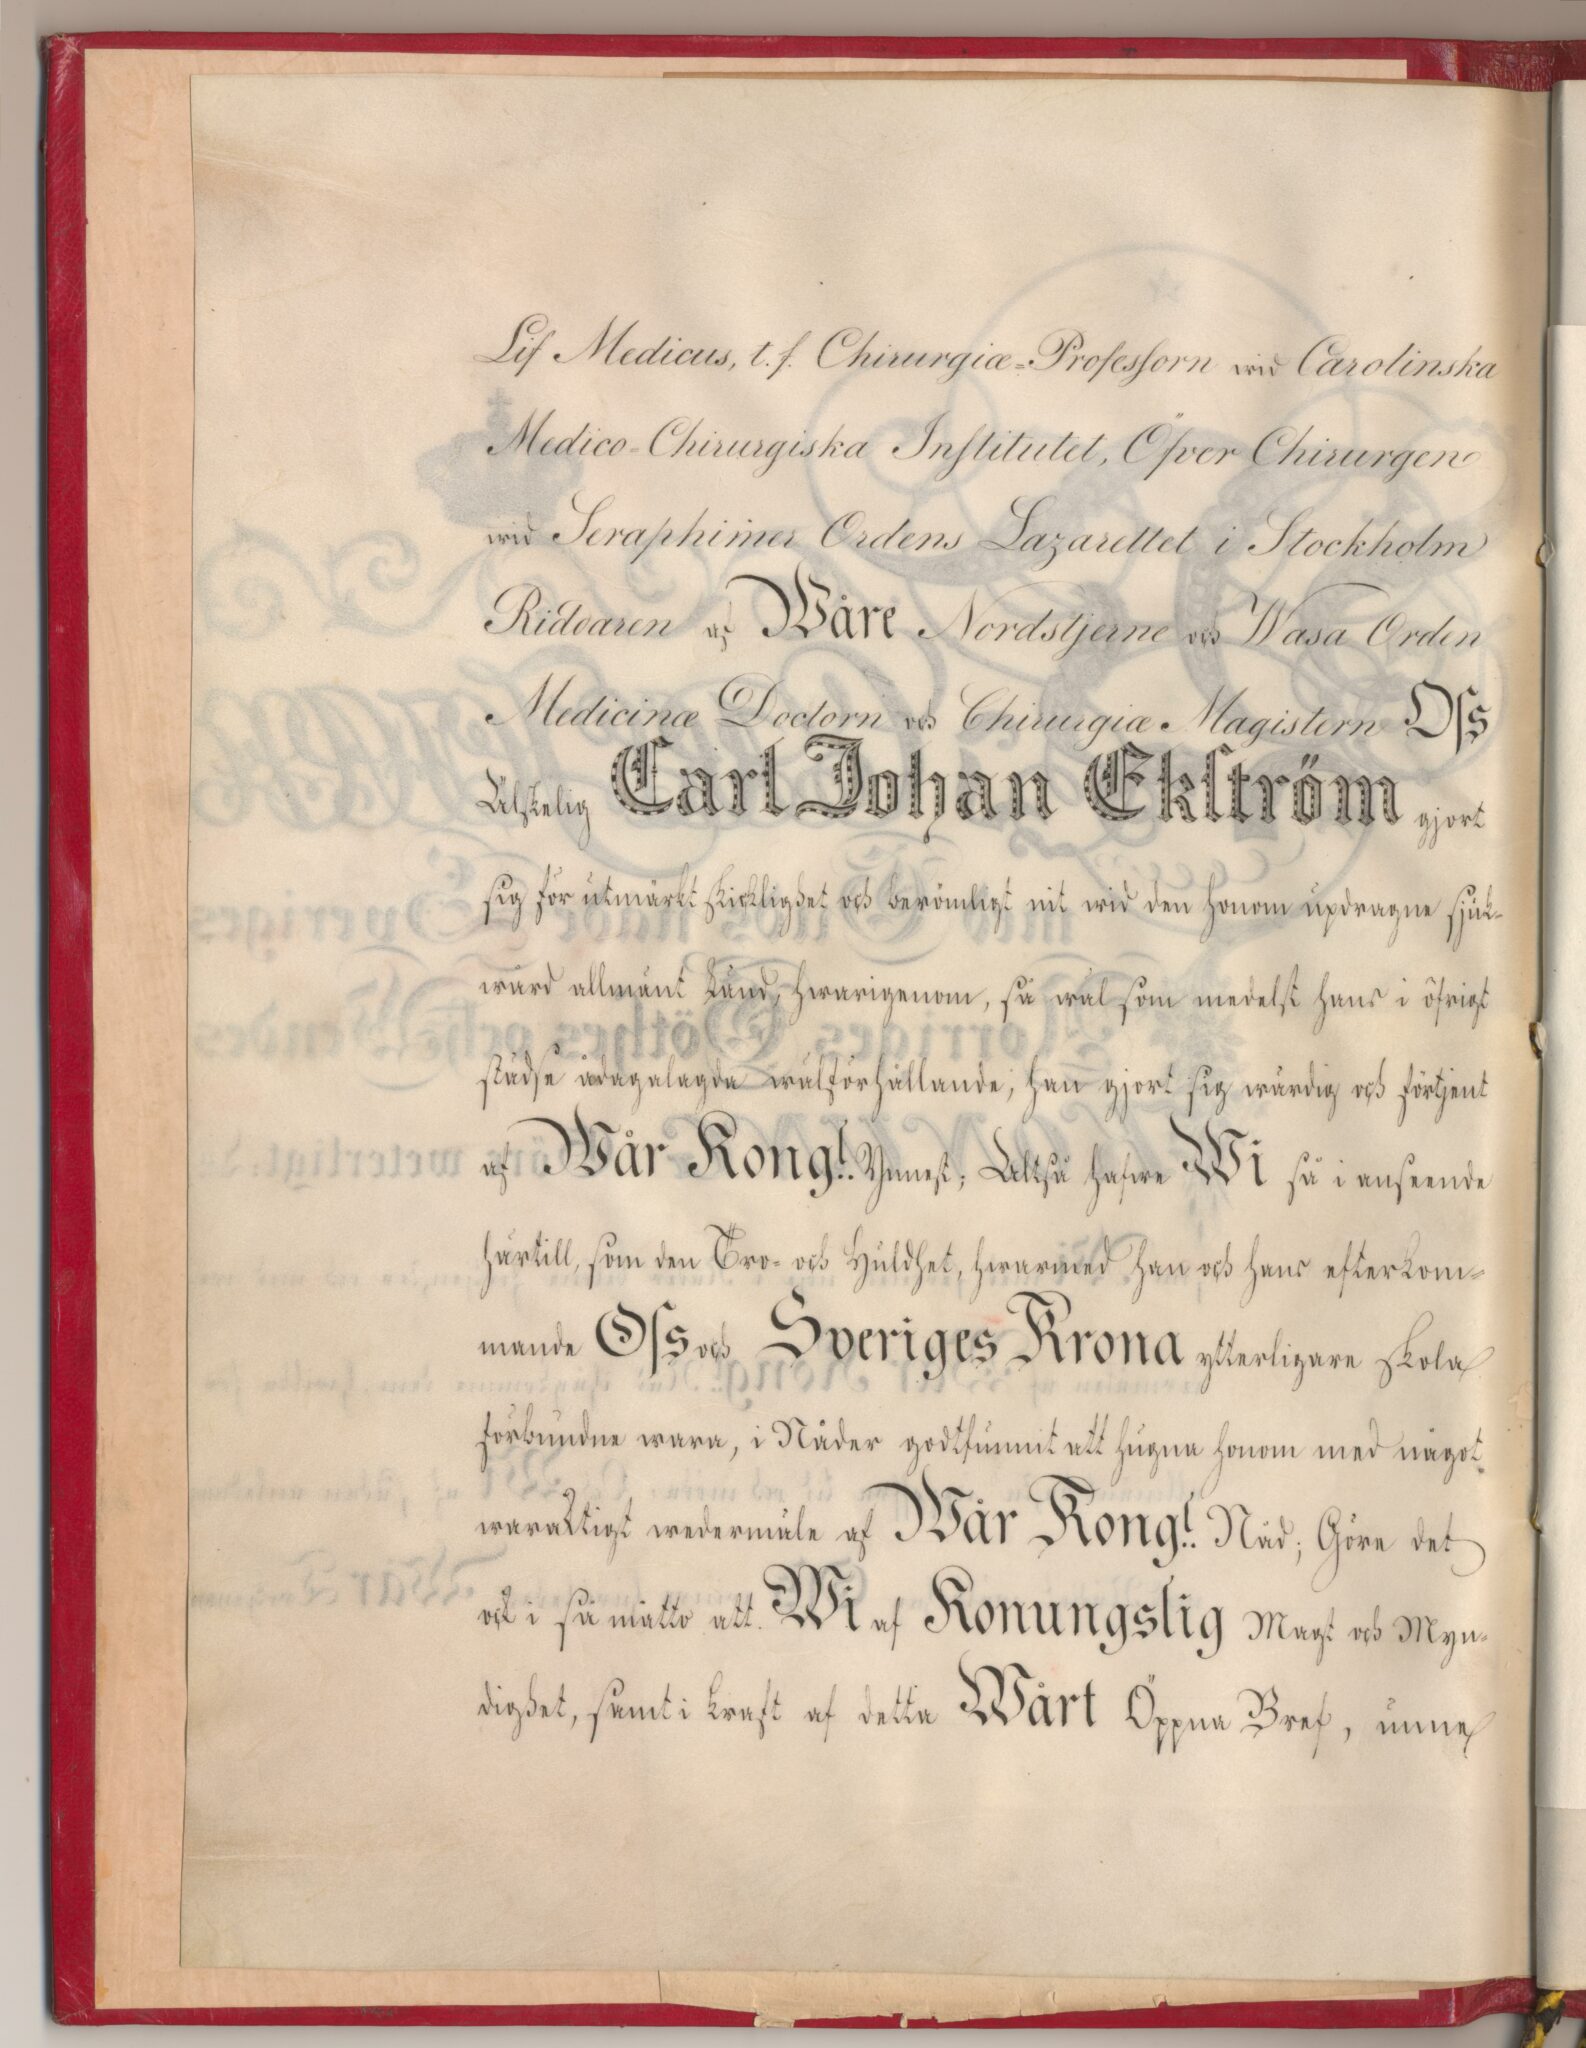 Lif Medicus, t.f. Chirurgiæ-Professorn wid Carolinska
Medico-Chirurgiska Institutet, Öfver Chirurgen
wid Seraphimer Ordens Lazarettet i Stockholm
Riddaren af Wåre Nordstjerne och Wasa Orden
Medicinæ Doctorn och Chirurgiæ Magistern Oss
Älskelig Carl Johan Ekström gjort
sig för utmärkt skicklighet och berömligt nit wid den honom updragne sjuk-
wård allmänt känd, hwarigenom, så wäl som medelst hans i öfrigt
städse ådagalagda wälförhållande, han gjort sig wärdig och förtjent
af Wår Kongl. Ynnest; Altså hafwe Wi så i anseende
härtill, som den Tro- och Huldhet, hwarmed han och hans efterkom-
mande Oss och Sveriges Krona ytterligare skola
förbundne wara, i Nåder godtfunnit att hugna honom med något
waraktigt wedermäle af Wår Kongl. Nåd; Göre det
ock i så måtto att Wi af Konungslig Magt och Myn-
dighet, samt i kraft af detta Wårt Öppna Bref, unne